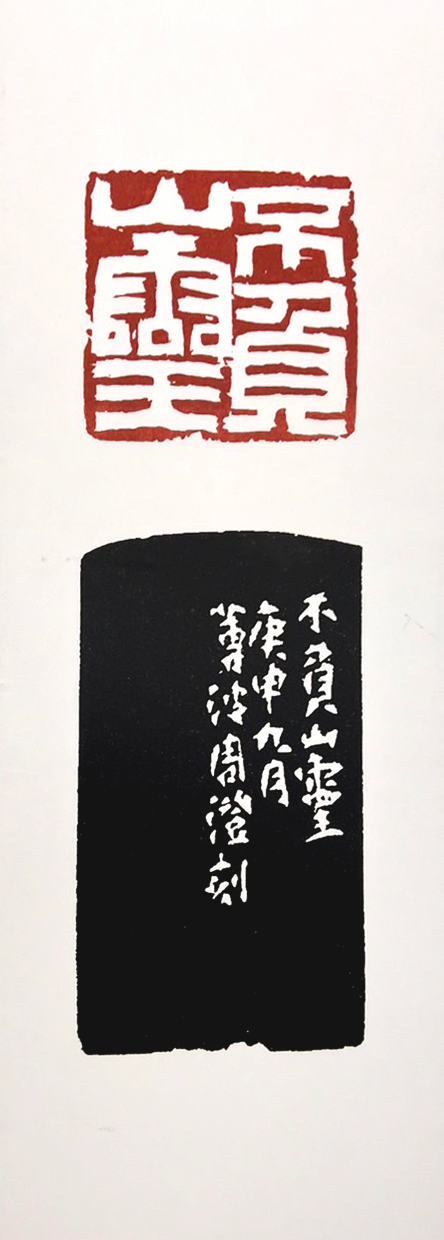 不負
山靈
不負山靈
庚申九月
蓴波周澄刻